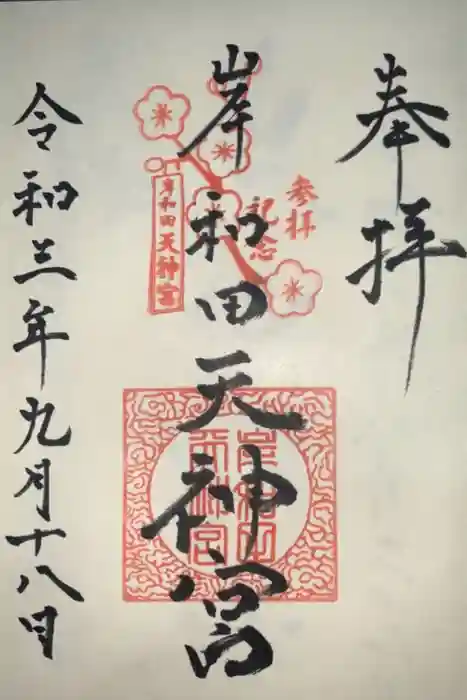 奉拝
参拝
記念
岸和田天神宮
岸和田天神宮
岸和田
天神宮
令和三年九月十八日